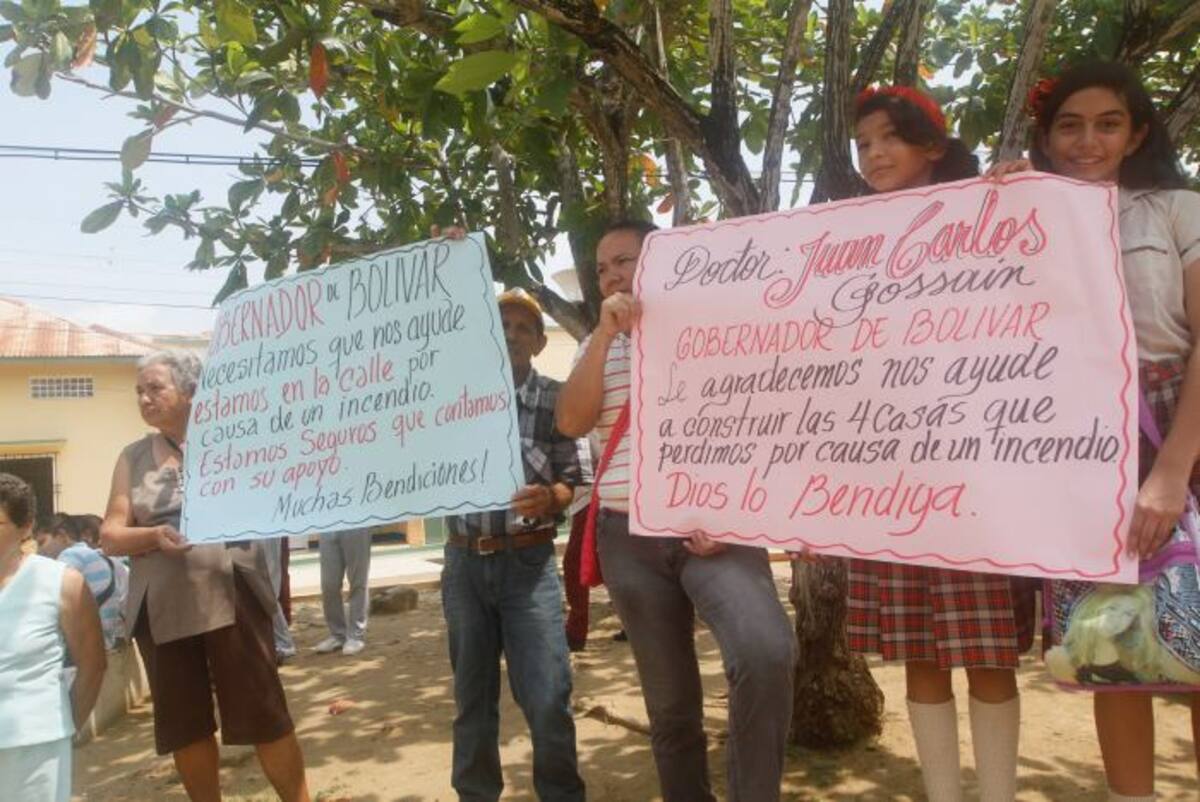 GOBERNADOR DE BOLIVAR
Necesitamos que nos ayude
estamos en la calle por
causa de un incendio.
Estamos seguros que contamos
con su apoyo.
Muchas Bendiciones!
Doctor: Juan Carlos
Gossain
GOBERNADOR DE BOLIVAR
Le agradecemos nos ayude
a construir las 4 casas que
perdimos por causa de un incendio.
Dios lo Bendiga.